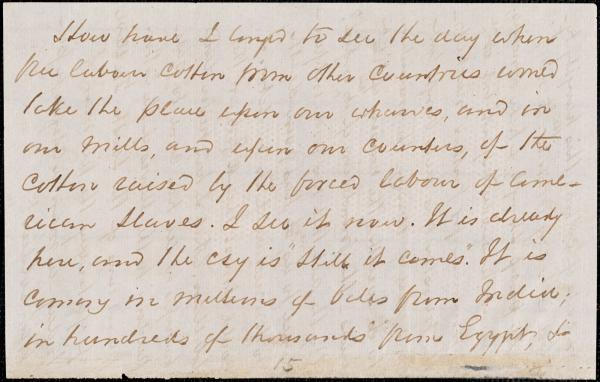 How have I long'd to see the day when
free labour cotton from other countries would
take the place upon our wharves, and in
our mills, and upon our counters, of the
cotton raised by the forced labour of Ame-
rican slaves. I see it now. It is already
here, and the cry is "still it comes". It is
coming in millions of bales from India,
in hundreds of thousands from Egypt, &
15